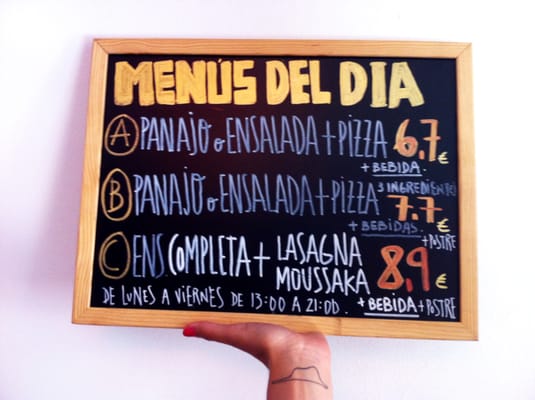 MENÚS DEL DIA
A PANAJO o ENSALADA + PIZZA 6,7 €
+ BEBIDA.
B PANAJO o ENSALADA + PIZZA 3 INGREDIENTES
7.7 €
+ BEBIDAS. + POSTRE
C ENS. COMPLETA + LASAGNA MOUSSAKA 8,9 €
DE LUNES A VIERNES DE 13:00 A 21:00. + BEBIDA + POSTRE